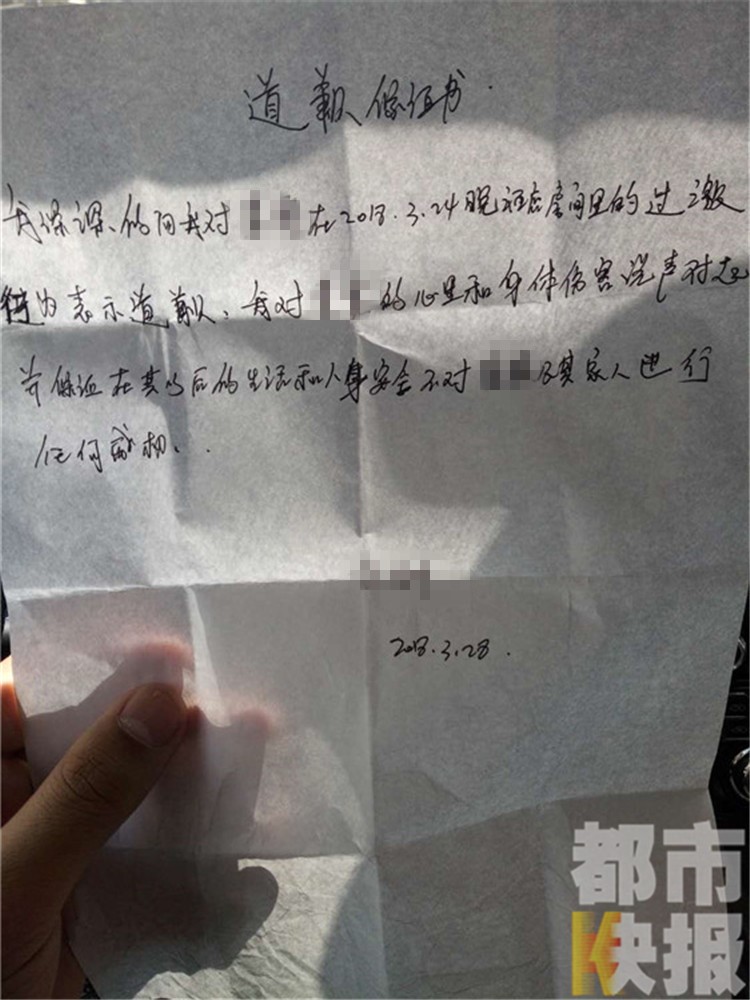 道歉保证书.
我深深的因我对 在2018.3.24晚酒店房间里的过激
行为表示道歉,我对 的心里和身体伤害说声对不起
并保证在其以后的生活和人身安全不对 及其家人进行
任何威胁..
2018.3.28.
都市
快报